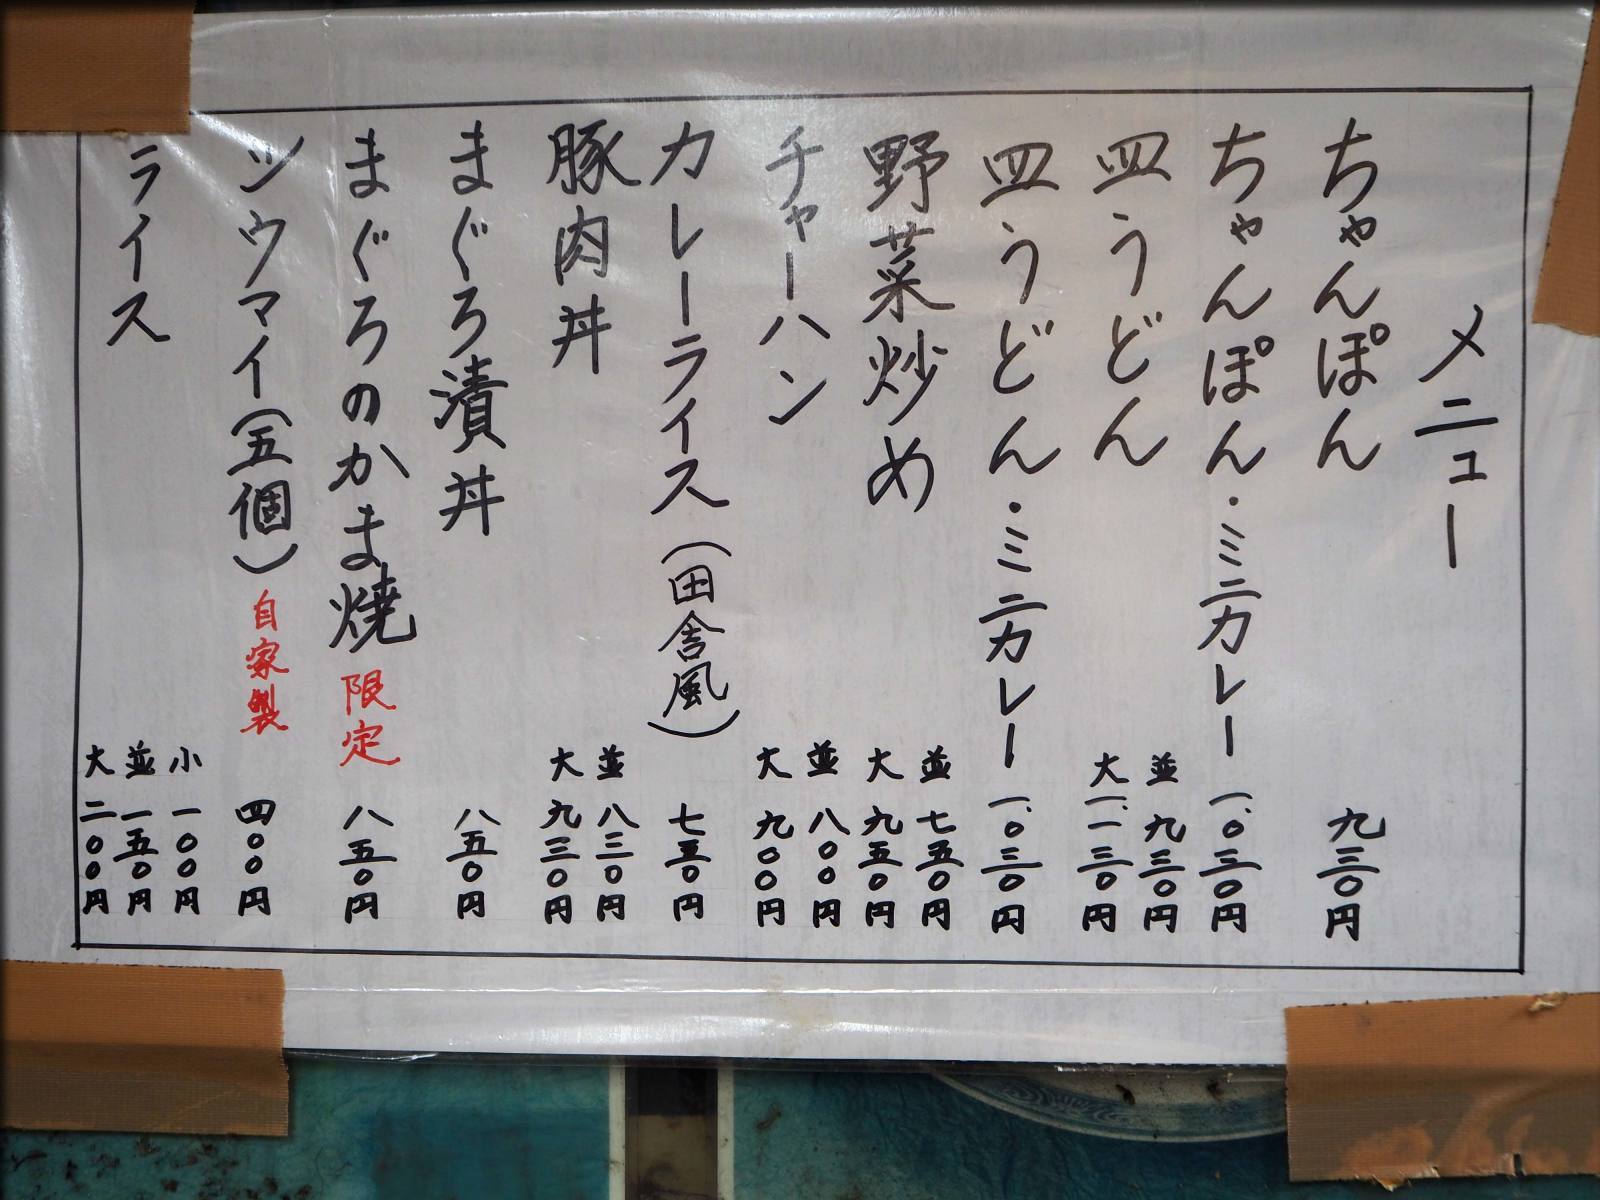 メニュー
ちゃんぽん 九三〇円
ちゃんぽん・ミニカレー 一、〇三〇円
皿うどん 並 九三〇円
大 一、一三〇円
皿うどん・ミニカレー 一、〇三〇円
野菜炒め 並 七五〇円
大 九五〇円
チャーハン 並 八〇〇円
大 九〇〇円
カレーライス(田舎風) 七五〇円
豚肉丼 並 八三〇円
大 九三〇円
まぐろ漬丼 八五〇円
まぐろのかま焼 限定 八五〇円
シウマイ(五個) 自家製 四〇〇円
ライス 小 一〇〇円
並 一五〇円
大 二〇〇円